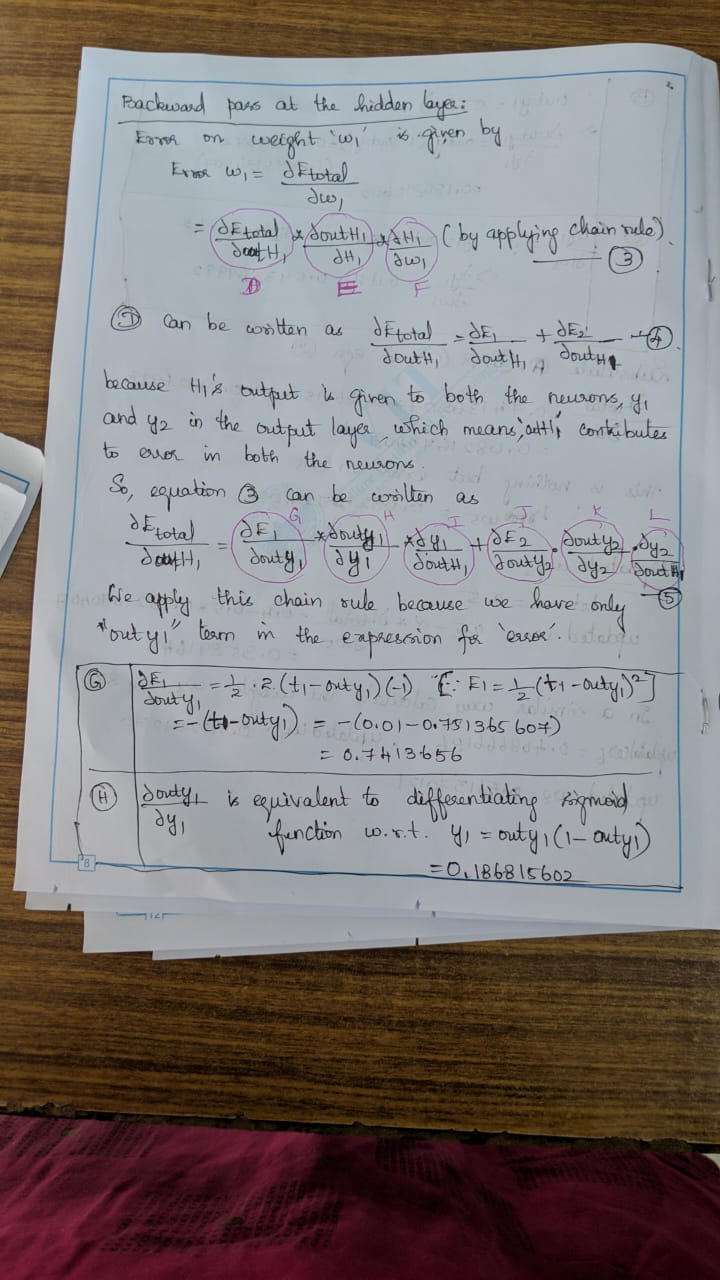 Backward pass at the hidden layer:
Error on weight 'w₁' is given by
Error w₁ = ∂Etotal/∂w₁
= ∂Etotal/∂outH₁ * ∂outH₁/∂H₁ * ∂H₁/∂w₁ (by applying chain rule). ③
D E F
Ⓓ can be written as ∂Etotal/∂outH₁ = ∂E₁/∂outH₁ + ∂E₂/∂outH₁ — ④
because H₁'s output is given to both the neurons, y₁
and y₂ in the output layer, which means, outH₁ contributes
to error in both the neurons.
So, equation ③ can be written as
G H I J K L
∂Etotal/∂outH₁ = ∂E₁/∂outy₁ * ∂outy₁/∂y₁ * ∂y₁/∂outH₁ + ∂E₂/∂outy₂ · ∂outy₂/∂y₂ · ∂y₂/∂outH₁ ⑤
We apply this chain rule because we have only
"outy₁" term in the expression for 'error'.
Ⓖ ∂E₁/∂outy₁ = 1/2 · 2 (t₁ - outy₁) (-1) [∵ E₁ = 1/2 (t₁ - outy₁)²]
= -(t₁ - outy₁) = -(0.01 - 0.751365607)
= 0.7413656
Ⓗ ∂outy₁/∂y₁ is equivalent to differentiating sigmoid
function w.r.t. y₁ = outy₁(1 - outy₁)
= 0.186815602
8
12